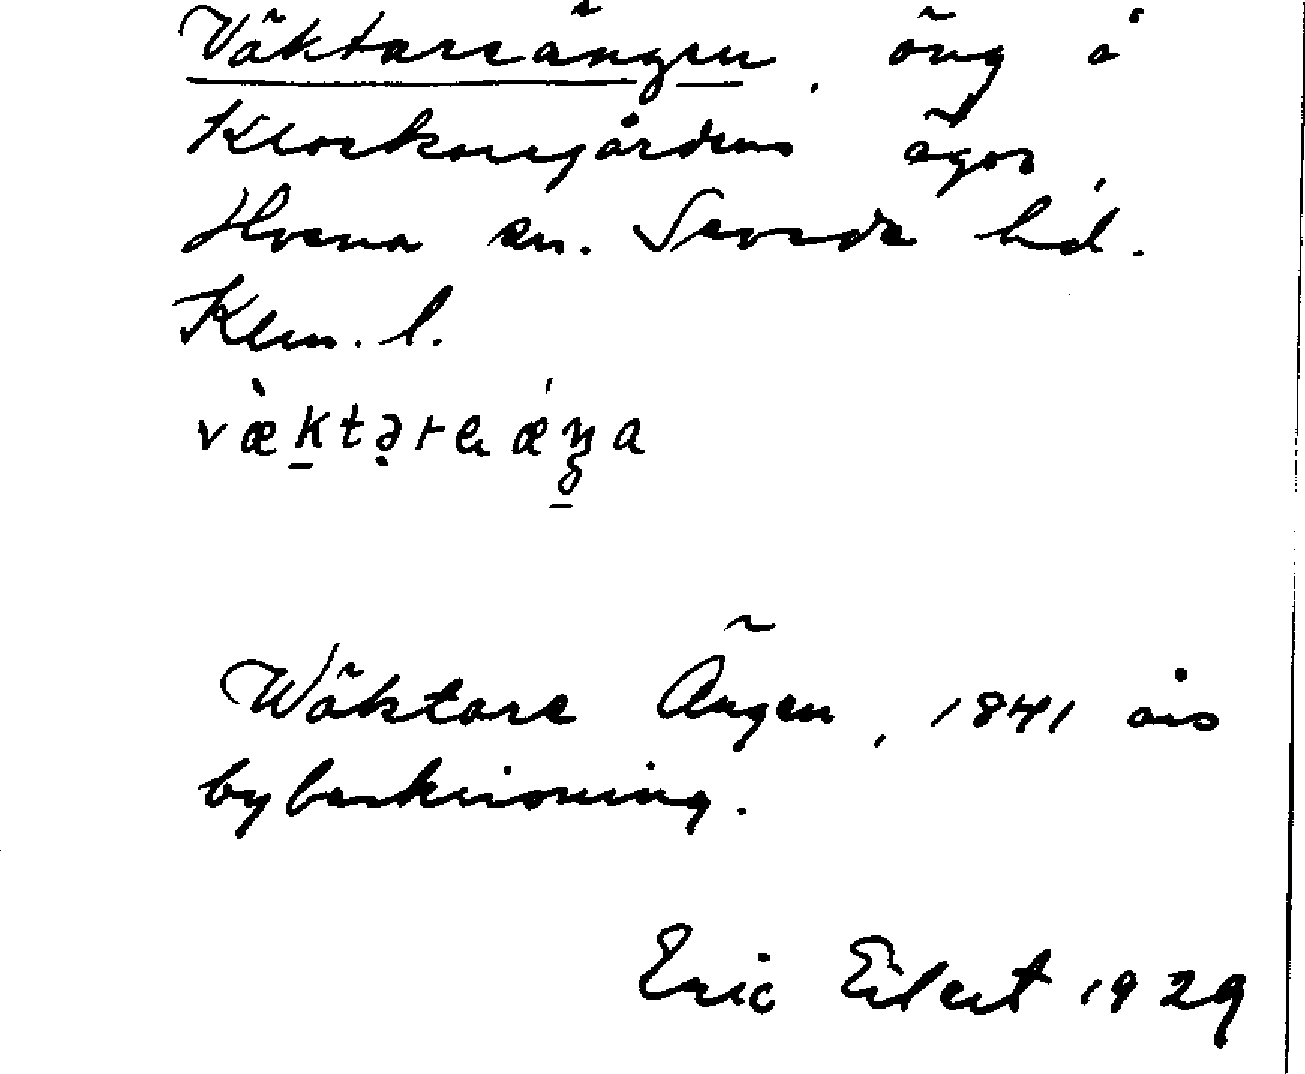 Väktareängen, äng å
Klockaregårdens ägor,
Hvena sn. Sevede hd.
Klm. l.
væ̀ktərea ǽŋa
Wäktare Ängen, 1841 års
bybeskrivning.
Eric Eilert 1929